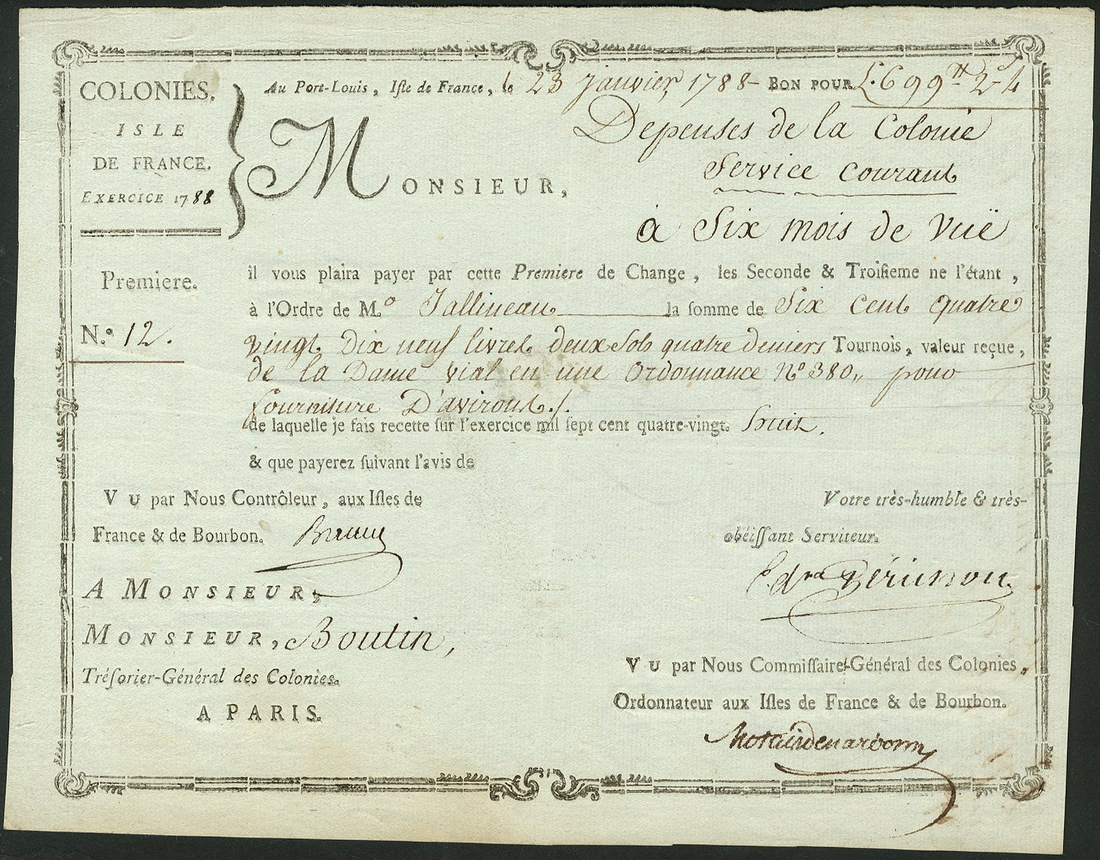 COLONIES.
ISLE
DE FRANCE.
EXERCICE 1788
Au Port-Louis, Isle de France, le 23 janvier 1788 - BON POUR £. 699tt 2s 4d
Depenses de la Colonie
Service courant
à Six mois de Vuë
MONSIEUR,
Premiere.
N.o 12.
il vous plaira payer par cette Premiere de Change, les Seconde & Troisieme ne l'étant,
à l'Ordre de M.o Tallineau la somme de Six Cent quatre
vingt Dix neuf livres deux Sols quatre deniers Tournois, valeur reçue,
de la Dame Vial en une Ordonnance No 380,, pour
fourniture D'avirons./.
de laquelle je fais recette sur l'exercice mil sept cent quatre-vingt. huit.
& que payerez suivant l'avis de
VU par Nous Contrôleur, aux Isles de
France & de Bourbon.
Votre très-humble & très-
obéissant Serviteur.
A MONSIEUR,
MONSIEUR, Boutin,
Trésorier-Général des Colonies.
A PARIS.
VU par Nous Commissaire-Général des Colonies,
Ordonnateur aux Isles de France & de Bourbon.